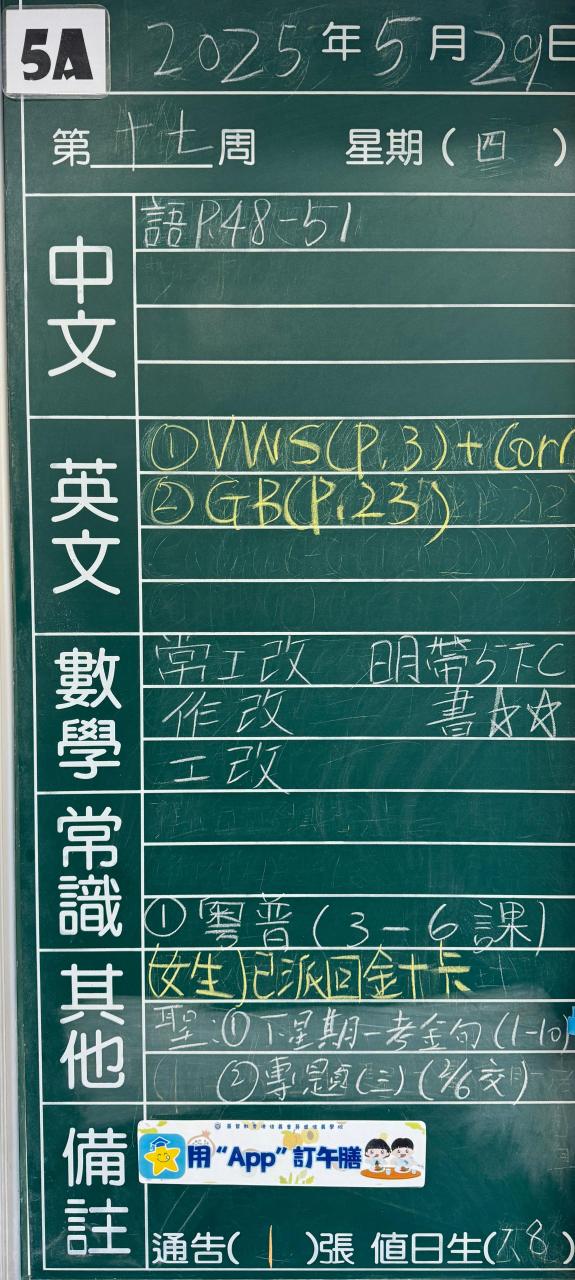 5A
2025年5月29日
第十七周 星期(四)
中文
語P.48-51
英文
①VWS(P.3)+Corr
②GB(P.23)
數學
常工改 明帶5下C
作改 書☆☆
工改
常識
①粵普(3-6課)
其他
(女生)已派回金十卡
聖:①下星期一考金句(1-10)
②專題(三)(2/6交)
備註
用“App”訂午膳
通告(1)張 值日生(7,8)